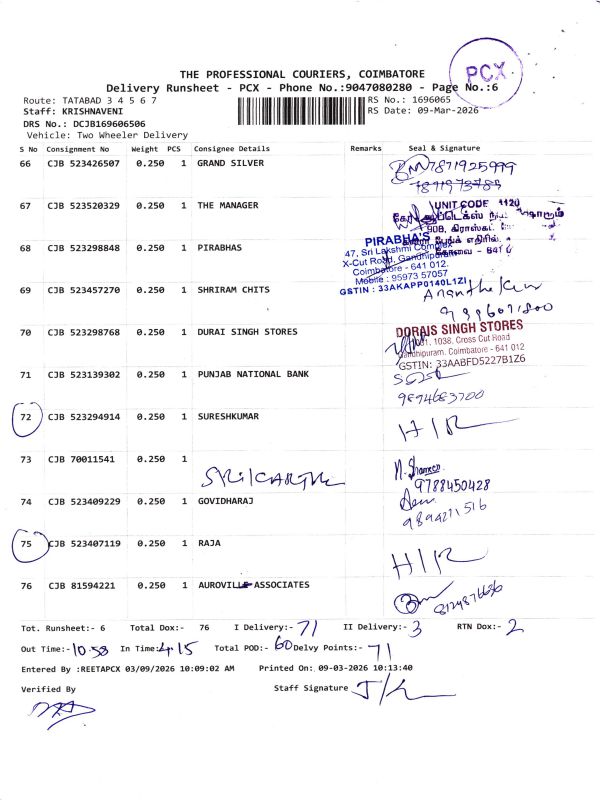 THE PROFESSIONAL COURIERS, COIMBATORE
PCX
Delivery Runsheet - PCX - Phone No.:9047080280 - Page No.:6
Route: TATABAD 3 4 5 6 7
RS No.: 1696065
Staff: KRISHNAVENI
RS Date: 09-Mar-2026
DRS No.: DCJB169606506
Vehicle: Two Wheeler Delivery
S No Consignment No Weight PCS Consignee Details Remarks Seal & Signature
66 CJB 523426507 0.250 1 GRAND SILVER 7871925999
7871973789
67 CJB 523520329 0.250 1 THE MANAGER
UNIT CODE 1120
90B, கிராஸ்கட்
கோவை - 641 0
68 CJB 523298848 0.250 1 PIRABHAS
PIRABHA'S
47, Sri Lakshmi Complex
X-Cut Road, Gandhipuram
Coimbatore - 641 012.
Mobile : 95973 57057
GSTIN : 33AKAPP0140L1ZI
69 CJB 523457270 0.250 1 SHRIRAM CHITS
70 CJB 523298768 0.250 1 DURAI SINGH STORES
DORAIS SINGH STORES
1031, 1038, Cross Cut Road
Gandhipuram, Coimbatore - 641 012
GSTIN: 33AABFD5227B1Z6
71 CJB 523139302 0.250 1 PUNJAB NATIONAL BANK
9894683700
72 CJB 523294914 0.250 1 SURESHKUMAR H/R
73 CJB 70011541 0.250 1
9788450428
74 CJB 523409229 0.250 1 GOVIDHARAJ
9894211516
75 CJB 523407119 0.250 1 RAJA H/R
76 CJB 81594221 0.250 1 AUROVILLE ASSOCIATES
8124876636
Tot. Runsheet:- 6 Total Dox:- 76 I Delivery:- 71 II Delivery:- 3 RTN Dox:- 2
Out Time:- 10:58 In Time:- 4:15 Total POD:- 60 Delvy Points:- 71
Entered By :REETAPCX 03/09/2026 10:09:02 AM Printed On: 09-03-2026 10:13:40
Verified By Staff Signature